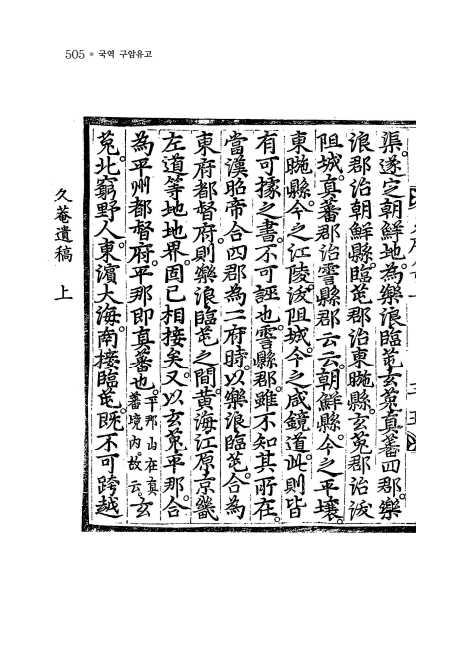 505 ● 국역 구암유고
渠。遂定朝鮮地。為樂浪臨芚玄菟真蕃四郡。樂
浪郡治朝鮮縣。臨芚郡治東暆縣。玄菟郡治沃
阻城。真蕃郡治霅縣郡云云。朝鮮縣。今之平壤。
東暆縣。今之江陵。沃阻城。今之咸鏡道。此則皆
有可據之書。不可誣也。霅縣郡。雖不知其所在。
當漢昭帝合四郡為二府時。以樂浪臨芚。合為
東府都督府。則樂浪臨芚之間。黃海江原京畿
左道等地地界。固已相接矣。又以玄菟平那合
為平州都督府。平那即真蕃也。平那山在真蕃境內。故云。玄
菟北窮野人。東濱大海。南接臨芚。既不可跨越
久菴遺稿 上